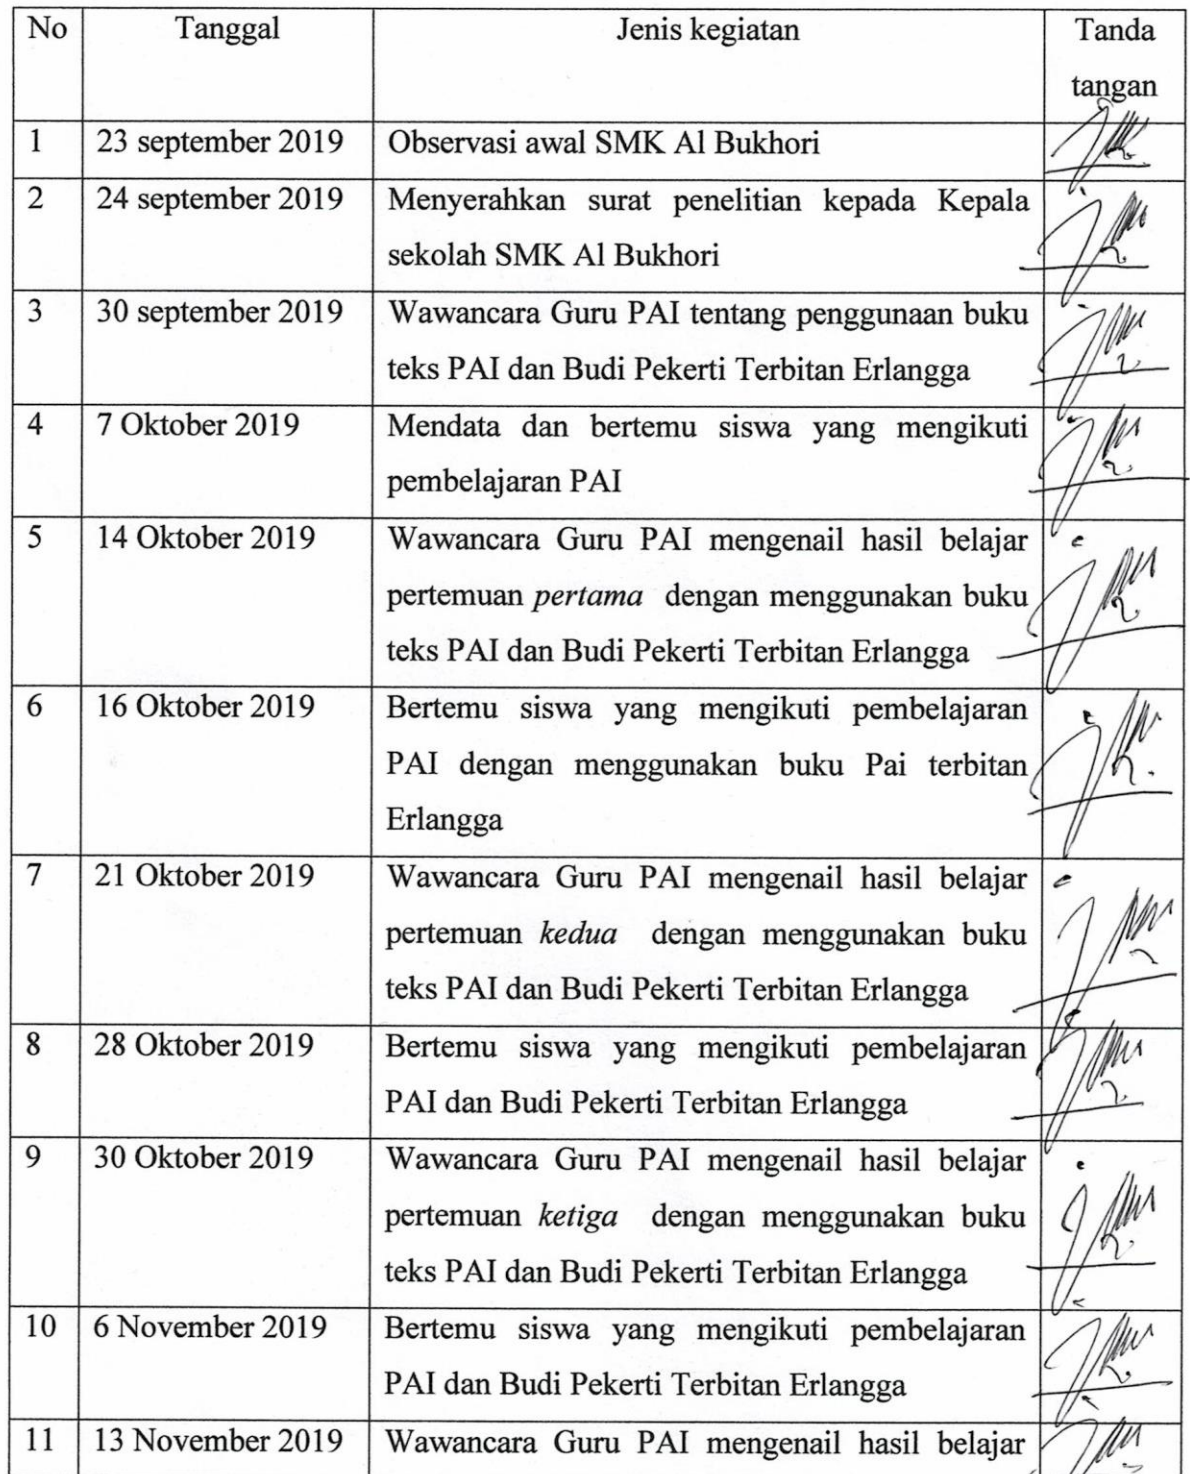 No Tanggal Jenis kegiatan Tanda
tangan
1 23 september 2019 Observasi awal SMK Al Bukhori
2 24 september 2019 Menyerahkan surat penelitian kepada Kepala
sekolah SMK Al Bukhori
3 30 september 2019 Wawancara Guru PAI tentang penggunaan buku
teks PAI dan Budi Pekerti Terbitan Erlangga
4 7 Oktober 2019 Mendata dan bertemu siswa yang mengikuti
pembelajaran PAI
5 14 Oktober 2019 Wawancara Guru PAI mengenail hasil belajar
pertemuan pertama dengan menggunakan buku
teks PAI dan Budi Pekerti Terbitan Erlangga
6 16 Oktober 2019 Bertemu siswa yang mengikuti pembelajaran
PAI dengan menggunakan buku Pai terbitan
Erlangga
7 21 Oktober 2019 Wawancara Guru PAI mengenail hasil belajar
pertemuan kedua dengan menggunakan buku
teks PAI dan Budi Pekerti Terbitan Erlangga
8 28 Oktober 2019 Bertemu siswa yang mengikuti pembelajaran
PAI dan Budi Pekerti Terbitan Erlangga
9 30 Oktober 2019 Wawancara Guru PAI mengenail hasil belajar
pertemuan ketiga dengan menggunakan buku
teks PAI dan Budi Pekerti Terbitan Erlangga
10 6 November 2019 Bertemu siswa yang mengikuti pembelajaran
PAI dan Budi Pekerti Terbitan Erlangga
11 13 November 2019 Wawancara Guru PAI mengenail hasil belajar